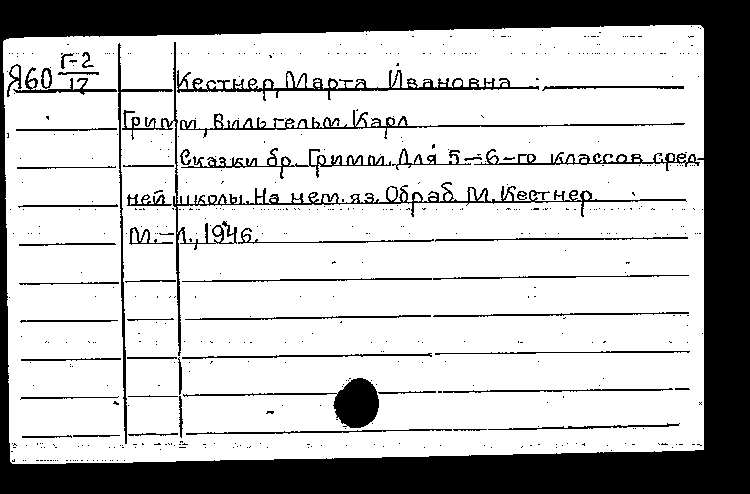 Я60 Г-2/17 Кестнер, Марта Ивановна
Гримм, Вильгельм Карл
Сказки бр. Гримм. Для 5-6-го классов сред-
ней школы. На нем. яз. Обраб. М. Кестнер.
М.-Л., 1946.